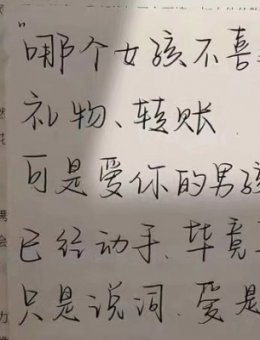 "哪个女孩不喜
礼物、转账
可是爱你的男孩
已经动手、毕竟
只是说词、爱是